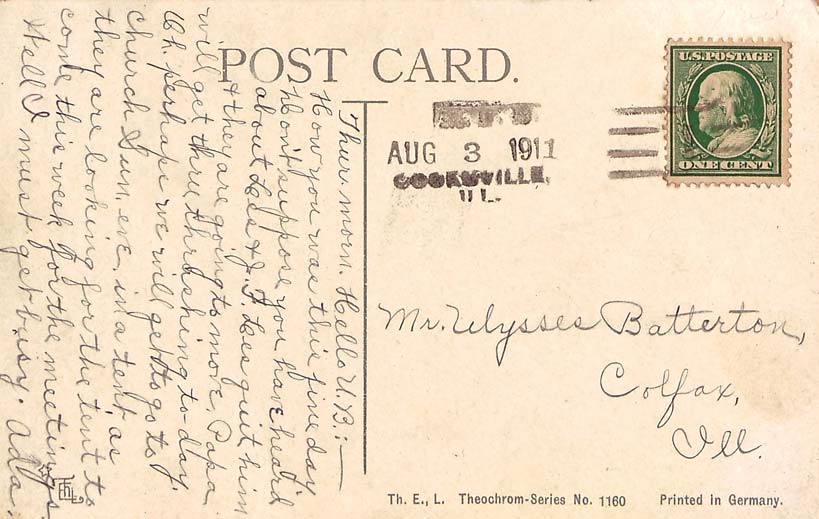 POST CARD.
U.S. POSTAGE
ONE CENT
AUG 3 1911
COOKSVILLE,
ILL.
Thur. morn. Hello U.B.:—
How you was this fine day
Don't suppose you have heard
about Les & J. Les quit him
& they are going to move. Papa
will get thru thrashing to-day.
Uh. perhaps we will get to go to
church Sun. eve. in a tent as
they are looking for the tent to
come this week for the meetings.
Well I must get busy. Ada.
Mr. Ulysses Batterton,
Colfax,
Ill.
Th. E., L. Theochrom-Series No. 1160 Printed in Germany.